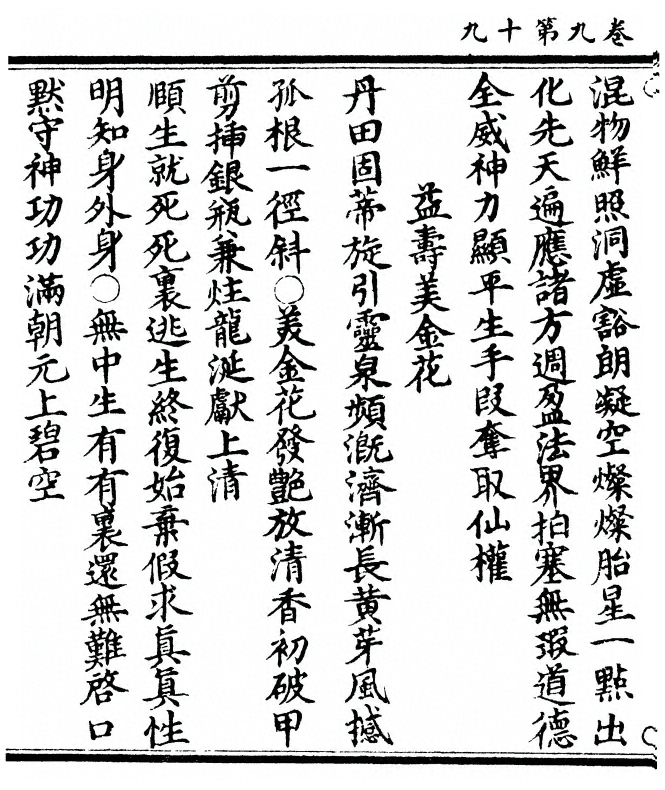 九十第九卷
混物鮮照洞虛豁朗凝空燦燦胎星一點出
化先天遍應諸方週盈法界拍塞無瑕道德
全威神力顯平生手段奪取仙權
益壽美金花
丹田固蒂旋引靈泉頻溉濟漸長黃芽風撼
孤根一徑斜○美金花發艷放清香初破甲
剪揷銀瓶兼炷龍涎獻上清
頤生就死死裏逃生終復始棄假求眞眞性
明知身外身○無中生有有裏還無難啓口
默守神功功滿朝元上碧空